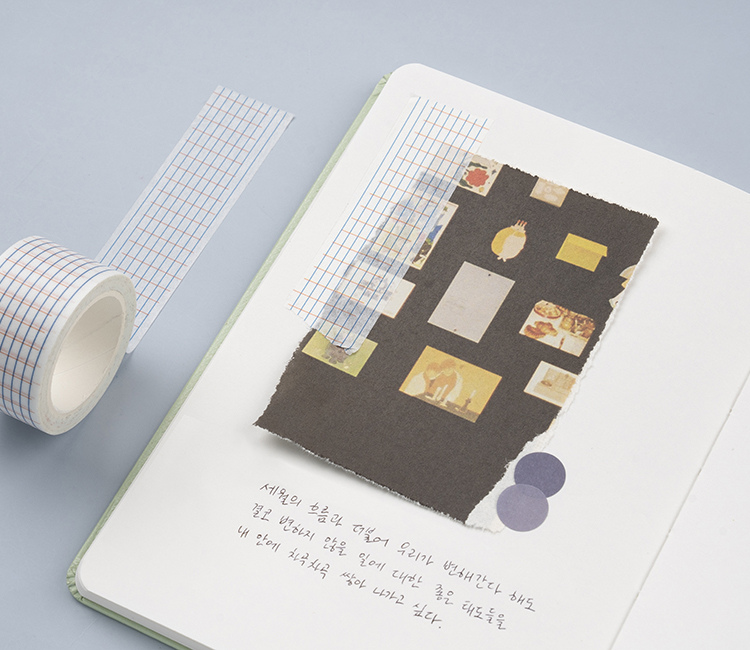 세월의 흐름과 더불어 우리가 변해간다 해도
결코 변하지 않을 일에 대한 좋은 태도들을
내 안에 차곡차곡 쌓아 나가고
싶다.